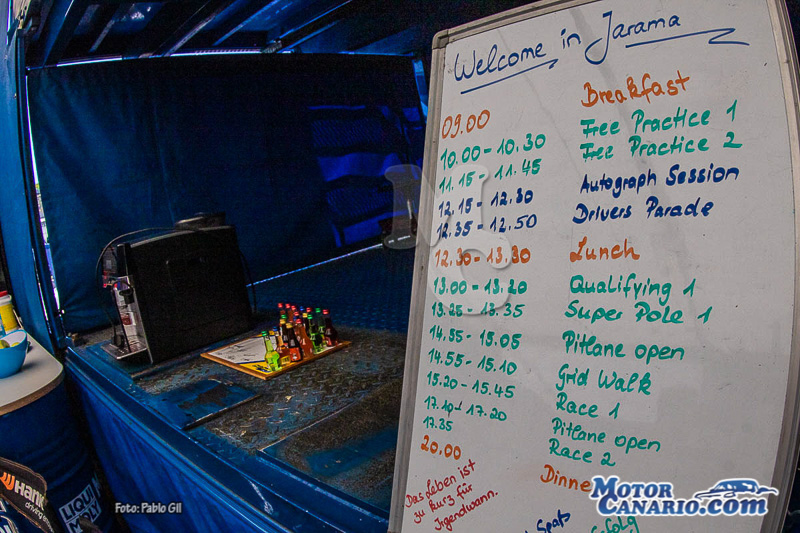 Welcome in Jarama
09.00 Breakfast
10.00 - 10.30 Free Practice 1
11.15 - 11.45 Free Practice 2
12.15 - 12.30 Autograph Session
12.35 - 12.50 Drivers Parade
12.30 - 13.30 Lunch
13.00 - 13.20 Qualifying 1
13.25 - 13.35 Super Pole 1
14.55 - 15.05 Pitlane open
14.55 - 15.10 Grid Walk
15.20 - 15.45 Race 1
17.10 - 17.20 Pitlane open
17.35 Race 2
20.00 Dinne
Das Leben ist
zu kurz für
Irgendwann.
Spaß
Erfolg
HANK
driving
LIQUI
MOLY
Foto: Pablo Gil
MOTOR
CANARIO.com